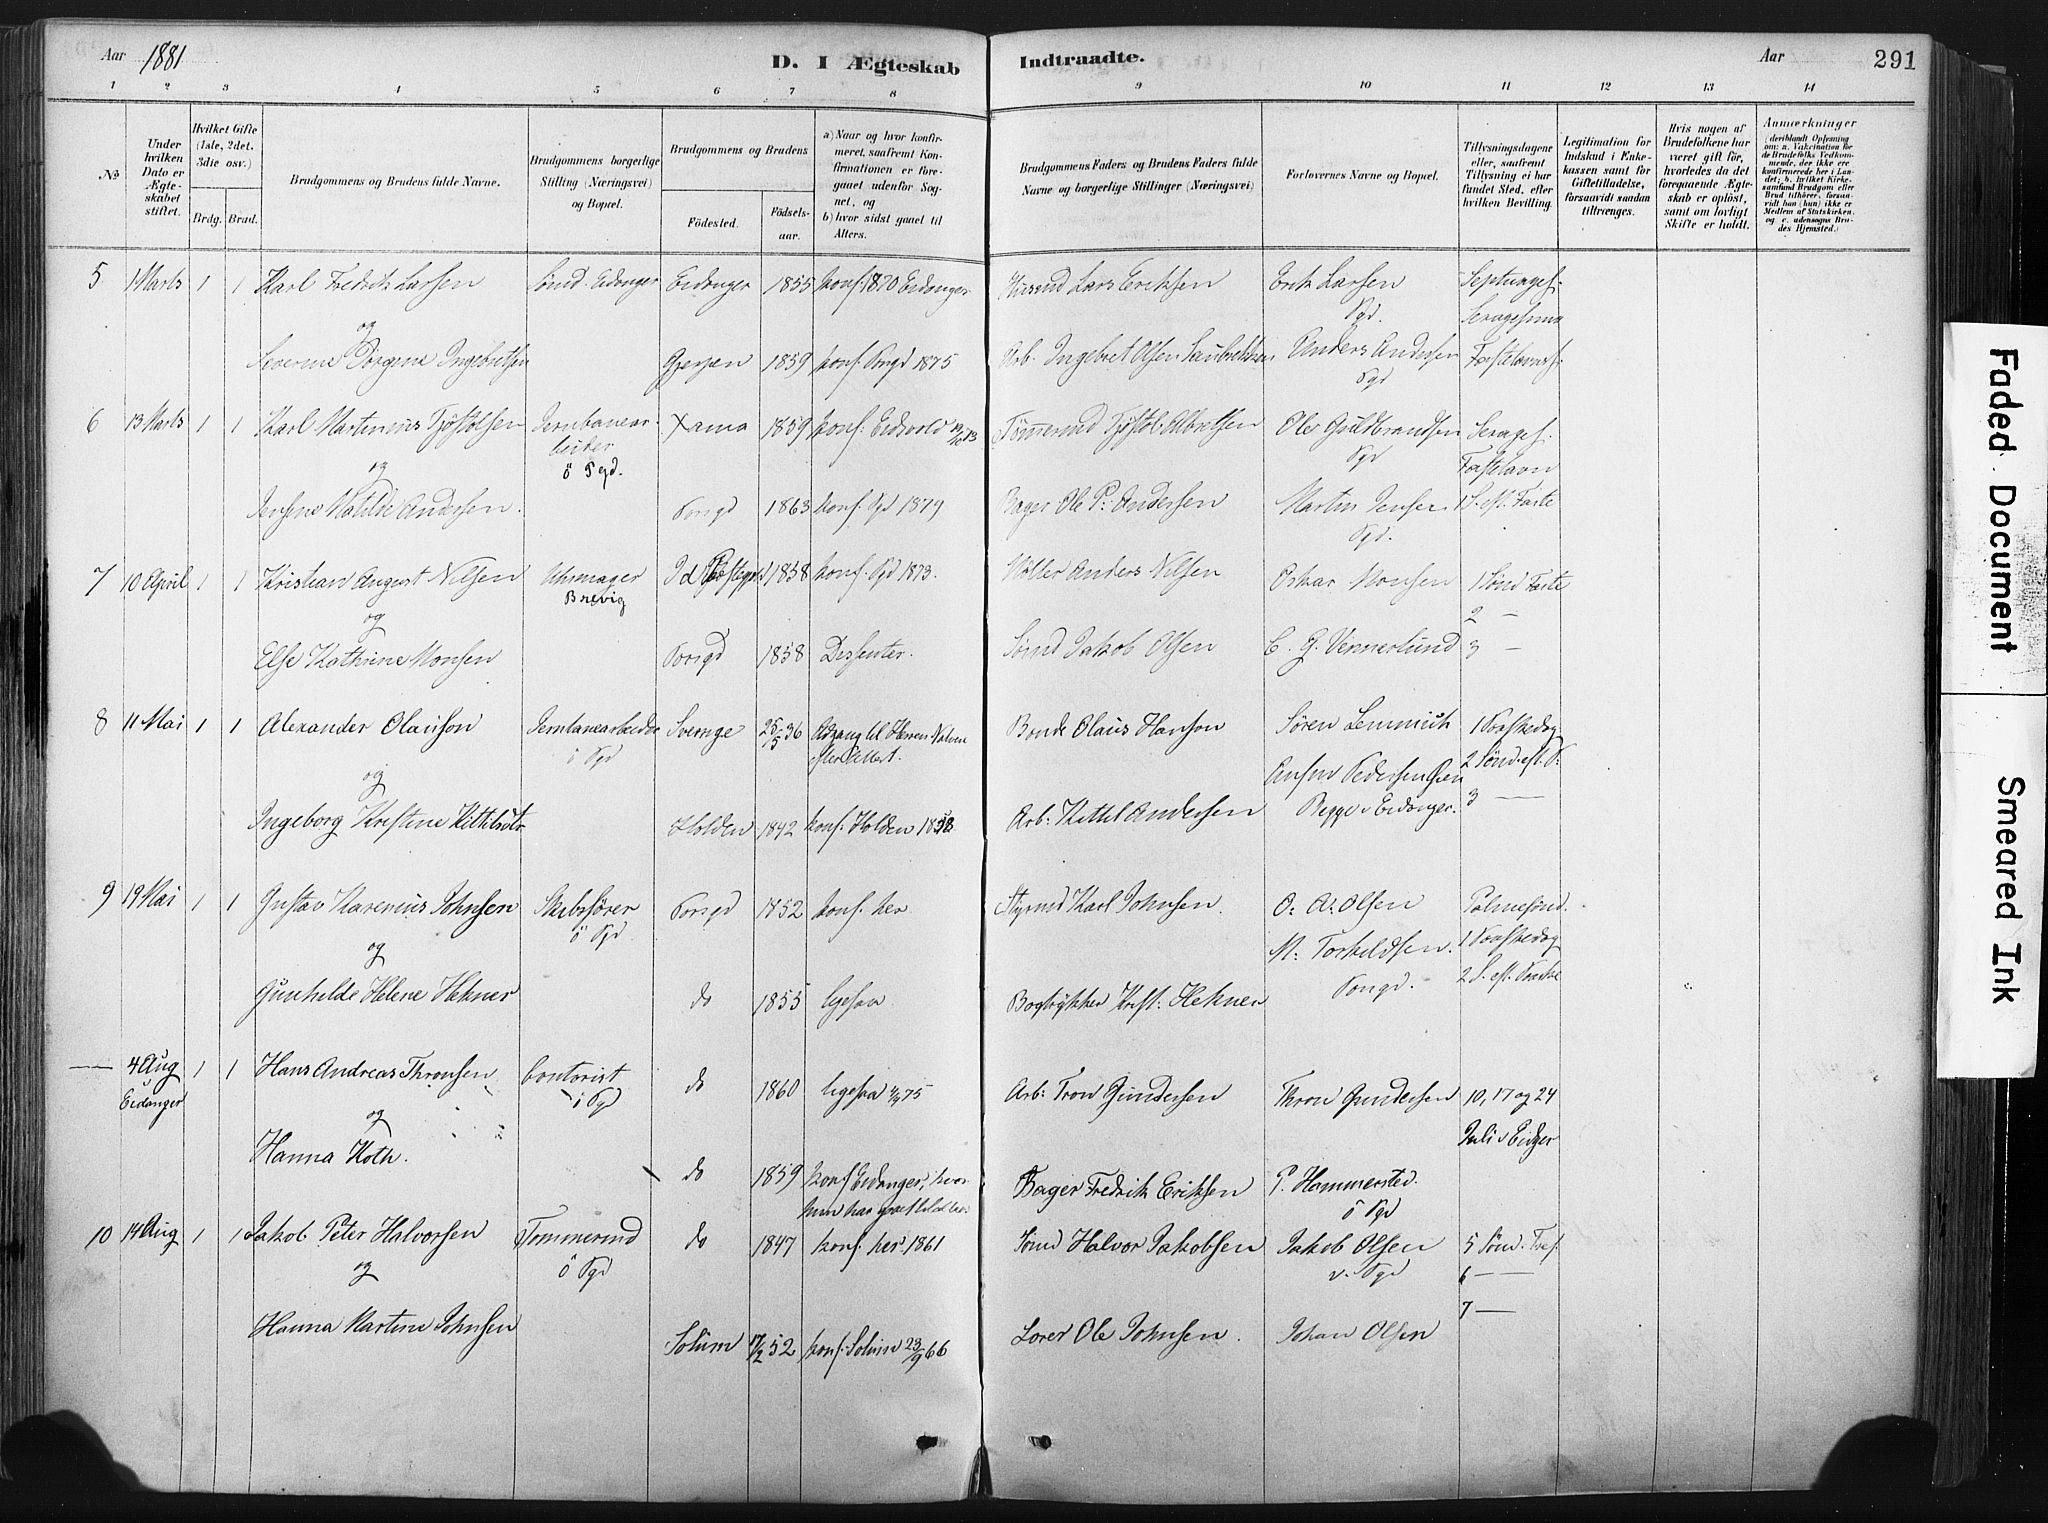 Aar 1881
D. I Ægteskab Indtraadte.
Aar
291
1 2 3 4 5 6 7 8 9 10 11 12 13 14
No
Under hvilken Dato er Ægteskabet stiftet.
Hvilket Gifte (1ste, 2det, 3die osv.)
Brdg. Brud.
Brudgommens og Brudens fulde Navne.
Brudgommens borgerlige Stilling (Næringsvei) og Bopæl.
Brudgommens og Brudens
Fødested.
Fødselsaar.
a) Naar og hvor konfirmeret, saafremt Konfirmationen er foregaaet udenfor Sognet, og
b) hvor sidst gaaet til Alters.
Brudgommens Faders og Brudens Faders fulde Navne og borgerlige Stillinger (Næringsvei)
Forlovernes Navne og Bopæl.
Tillysningsdagene eller, saafremt Tillysning ei har fundet Sted, efter hvilken Bevilling.
Legitimation for Indskud i Enkekassen samt for Giftetilladelse, forsaavidt saadan tiltrænges.
Hvis nogen af Brudefolkene har været gift før, hvorledes da det foregaaende Ægteskab er opløst, samt om lovligt Skifte er holdt.
Anmærkninger
5 1 Marts 1 1 Karl Fredrik Larsen Sømd. Eidanger Eidanger 1855 konf. 1870 Eidanger Lars Eriksen Erik Larsen Septuages.
og Pgd. Sexagesima
Severine Torgine Ingebretsen 1859 konf. Porsgd 1875 Arb. Ingebret Olsen Anders Andersen Fastelavnss.
Pgd
6 13 Marts 1 1 Karl Martinius Tjøstolsen Jernbanear- 1859 konf. Eidsvold Tømmermd Tjøstol Albretsen Ole Guldbrandsen Sexages.
beider
og i Pgd. Pgd Fastelavn
Jensine Matilde Andersen. Porsgd 1863 konf. Pgd 1879 Bager Ole P. Andersen Martin Jensen 1 S. eft. Faste
Pgd.
7 10 April 1 1 Kristian August Nilsen Uhrmager 1858 konf. Pgd 1873. Møller Anders Nilsen Oskar Monsen 1 Sønd Faste
Brevig
og 2 —
Else Kathrine Monsen Porsgd 1858 Dissenter. Sømd Jakob Olsen C. G. Vennerlund 3 —
8 11 Mai 1 1 Alexander Olauson Jernbanearbeider Sverrige 25/5 36 Adgang til Herrens Natver Bonde Olaus Hanson Søren Lemmich 1 Paaskedag
i Pgd efter Attest.
og Pedersen 2 Sønd. eft. P.
Ingeborg Kirstine Kittilsdtr Holden 1842 konf. Holden 1858 Arb. Kittel Andersen Begge v. Eidanger. 3 —
9 19 Mai 1 1 Gustav Marenius Johnsen Skibsfører Porsgd 1852 konf. her Styrmd Karl Johnsen. O. A. Olsen Palmesønd.
i Pgd M. Torkildsen. 1 Paaskedag
og
Gunhilde Helene Hekner do 1855 ligesaa Bogtrykker Krist. Hekner Porsgd. 2 S. eft. Paaske
— 4 Aug 1 1 Hans Andreas Thronsen Contorist do 1860 ligesaa 75 Arb. Tron Gundersen Thron Gundersen 10, 17 og 24
i Eidanger i Pgd
og Juli v Eidger
Hanna Koth. do 1859 konf Eidanger, hvor Bager Fredrik Eriksen P. Hammersted.
hun har i Pgd
10 14 Aug 1 1 Jakob Peter Halvorsen Tømmermd do 1847 konf. her 1861 Sømd Halvor Jakobsen Jakob Olsen 5 Sønd. Tref.
og i Pgd v. Pgd 6 —
7 —
Hanna Martine Johnsen Solum 17/2 52 konf. Solum 23/9 66 Ole Johnsen. Johan Olsen
Faded Document
Smeared Ink